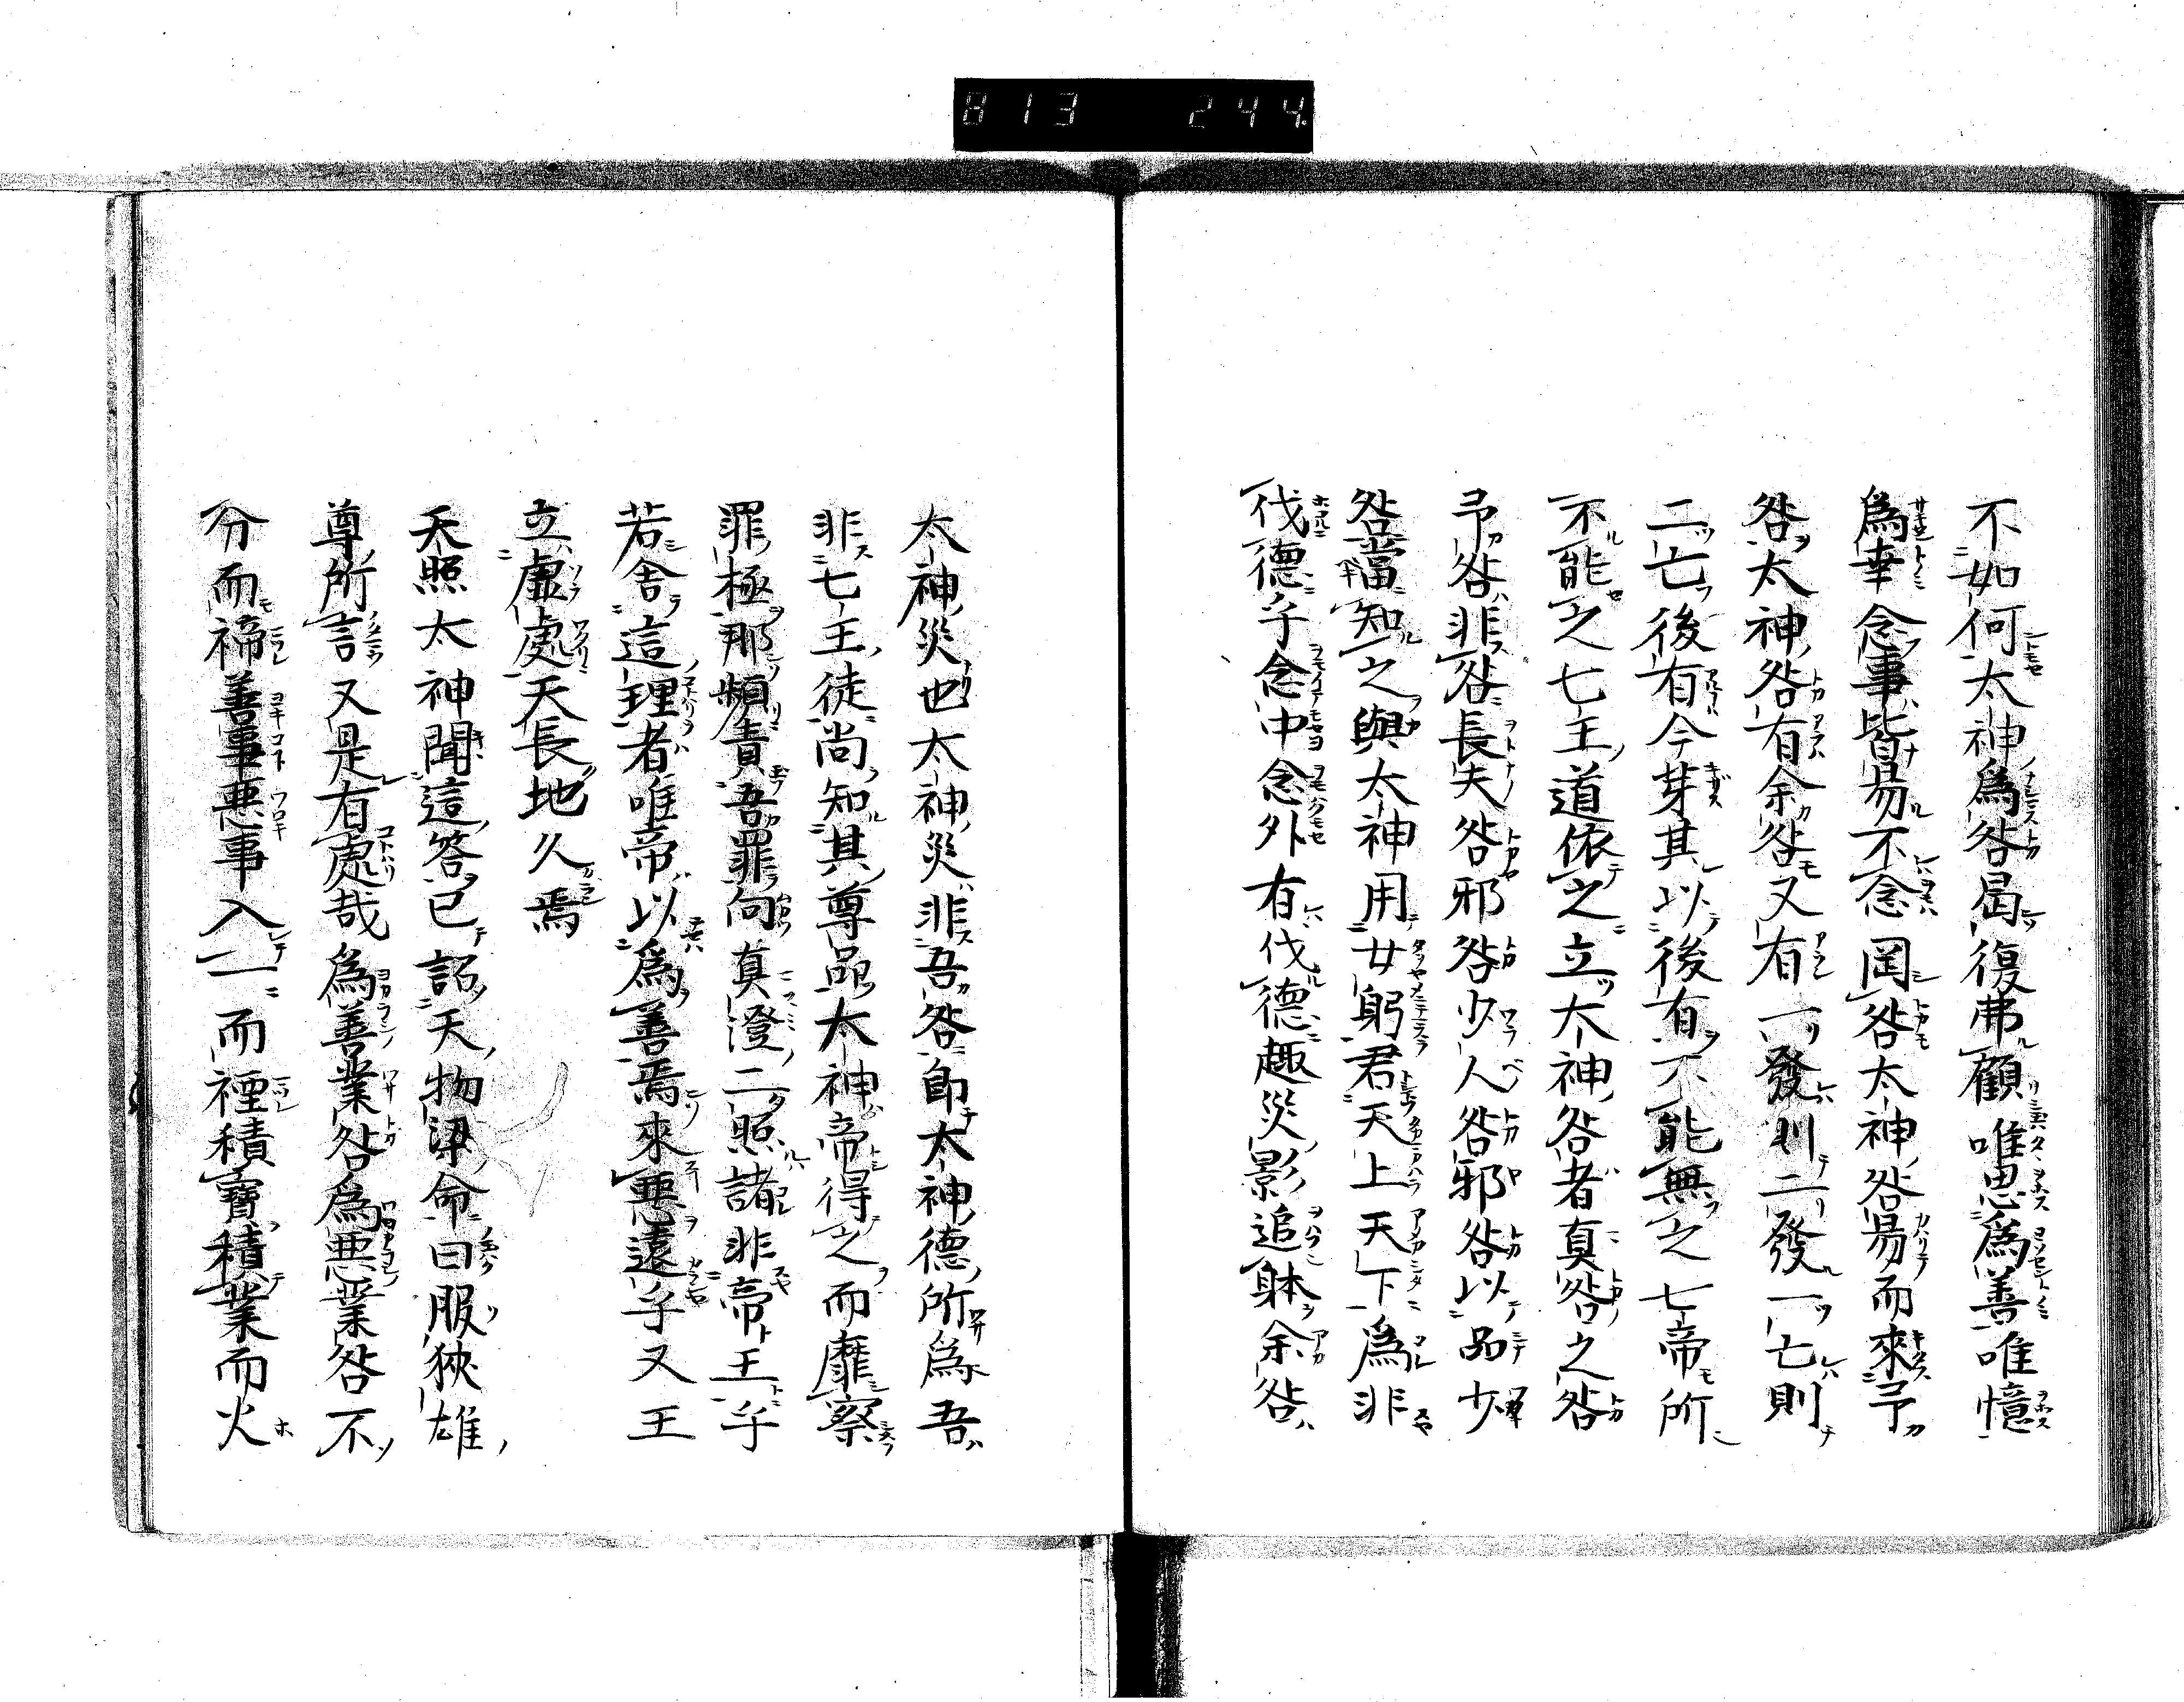 813 244
不如何太神爲咎曷復弗顧唯思爲善唯憶
爲幸念事皆易不念罔咎太神咎易而來予
咎太神咎有余咎又有一發則二發一亡則
二亡後有今芽其以後有不能無之七帝所
不能之七王道依之立太神咎者真咎之咎
予咎非咎長夫咎邪咎少人咎邪咎以品少
咎當知之與太神用女躬君天上天下爲非
伐德乎念中念外有伐德趣災影追躰余咎
太神災也太神災非吾咎卽太神德所爲吾
非七王徒尚知其尊品太神帝得之而靡察
罪極那頻責吾罪向真澄二照諸非帝王乎
若舍這理者唯帝以爲善焉來惡遠乎又王
立虛處天長地久焉
天照太神聞這答已詔天物梁命曰服狹雄
尊所言又是有處哉爲善業咎爲惡業咎不
分而禘善事惡事入一而禋積寶積業而火